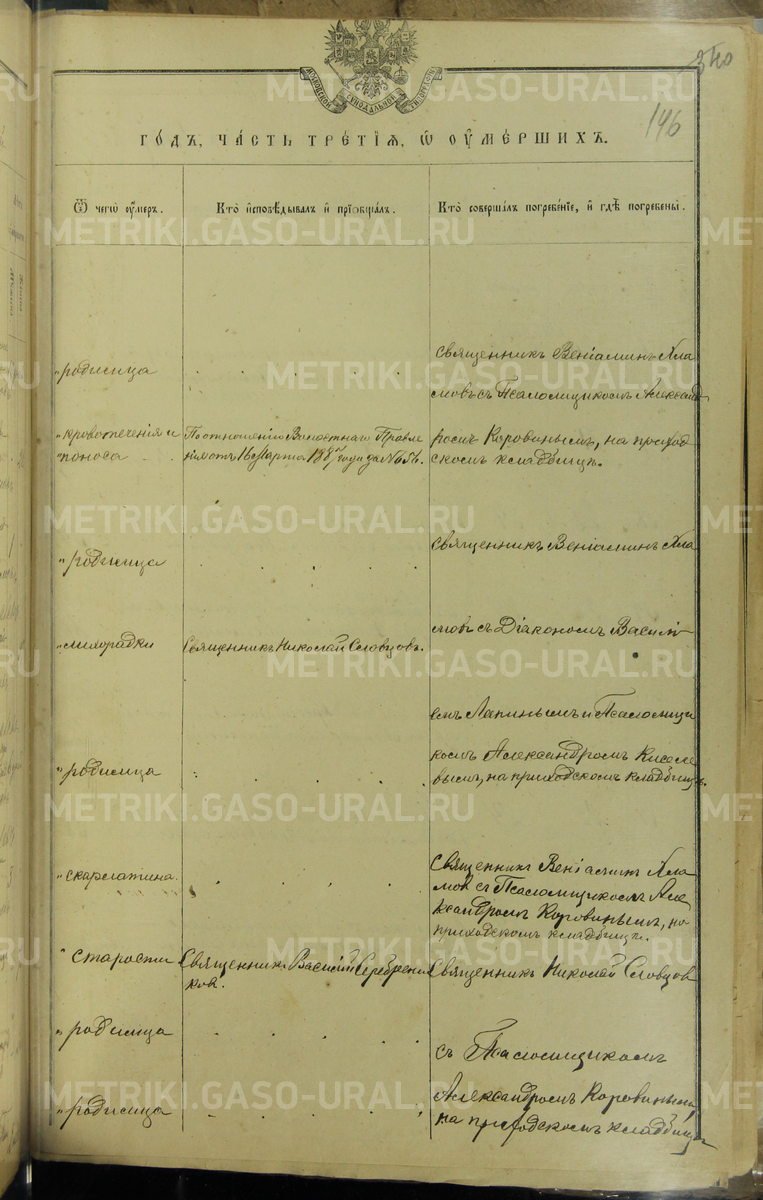 МОСКОВСКОЙ СѴНОДАЛЬНОЙ ТИПОГРАФІИ
340
146
ГОДЪ, ЧАСТЬ ТРЕТІЯ, Ѡ ОУМЕРШИХЪ.
Ѿ чегѡ оумеръ.
Кто исповѣдывалъ и пріобщалъ.
Кто совершалъ погребеніе, и гдѣ погребены.
Священникъ Веніаминъ Хла
„родимца
мовъ съ Псаломщикомъ Александ
„кровотеченія и
По отношенію Волостнаго Правле
ромъ Коровинымъ, на приход
поноса
нія отъ 16 Марта года за №
скомъ кладбищѣ.
Священникъ Веніаминъ Хла
„родимца
мовъ съ Діакономъ Василі
„лихорадки
Священникъ Николай Словцовъ.
емъ Лапинымъ и Псаломщи
комъ Александромъ Киселе
„родимца
вымъ, на приходскомъ кладбищѣ.
Священникъ Веніаминъ Хла
„скарлатина
мовъ съ Псаломщикомъ Але
ксандромъ Коровинымъ, на
приходскомъ кладбищѣ.
„старости
Священникъ Василій Серебрени
ковъ.
Священникъ Николай Словцов
„родимца
съ Псаломщикомъ
Александромъ Коровинымъ,
„родимца
на приходскомъ кладбищѣ
METRIKI.GASO-URAL.RU